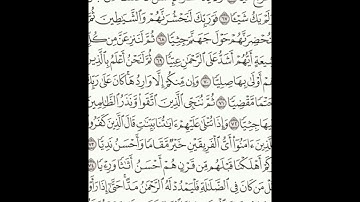 وَلَمْ يَكُ شَيْـًٔا ٦٧ فَوَرَبِّكَ لَنَحْشُرَنَّهُمْ وَٱلشَّيَـٰطِينَ ثُمَّ
نُحْضِرَنَّهُمْ حَوْلَ جَهَنَّمَ جِثِيًّا ٦٨ ثُمَّ لَنَنزِعَنَّ مِن ك
يعَةٍ أَيُّهُمْ أَشَدُّ عَلَى ٱلرَّحْمَـٰنِ عِتِيًّا ٦٩ ثُمَّ لَنَحْنُ أَعْلَمُ بِٱلَّذِي
هُمْ أَوْلَىٰ بِهَا صِلِيًّا ٧٠ وَإِن مِّنكُمْ إِلَّا وَارِدُهَا كَانَ عَلَىٰ رَبِّ
حَتْمًا مَّقْضِيًّا ٧١ ثُمَّ نُنَجِّى ٱلَّذِينَ ٱتَّقَوا۟ وَّنَذَرُ ٱلظَّـٰلِمِينَ
يهَا جِثِيًّا ٧٢ وَإِذَا تُتْلَىٰ عَلَيْهِمْ ءَايَـٰتُنَا بَيِّنَـٰتٍ قَالَ ٱلَّذِينَ كَفَرُو
ذِينَ ءَامَنُوٓا۟ أَىُّ ٱلْفَرِيقَيْنِ خَيْرٌ مَّقَامًا وَأَحْسَنُ نَدِيًّا ٧٣
كَمْ أَهْلَكْنَا قَبْلَهُم مِّن قَرْنٍ هُمْ أَحْسَنُ أَثَـٰثًا وَرِءْيًا
لْ مَن كَانَ فِى ٱلضَّلَـٰلَةِ فَلْيَمْدُدْ لَهُ ٱلرَّحْمَـٰنُ مَدًّا حَتَّىٰٓ إِذَا رَأَوْ